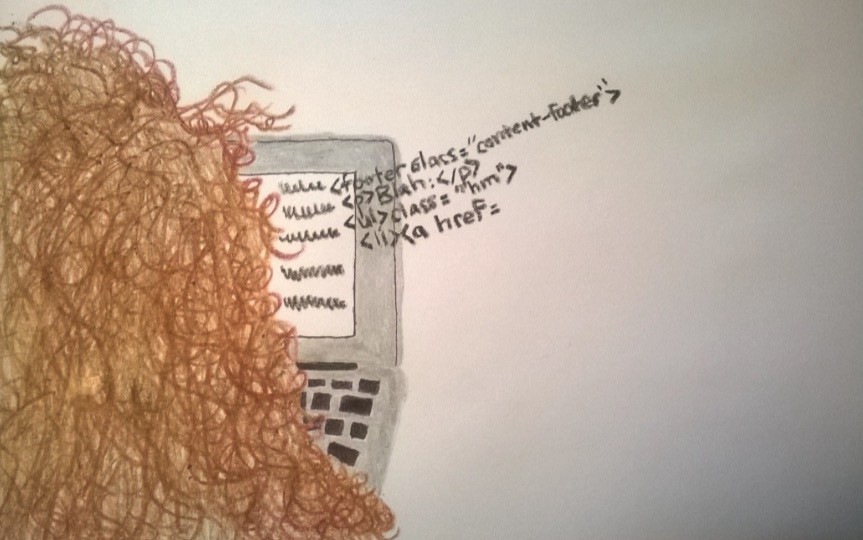 <footer class="content-footer">
<p>Blah:</p>
<ul>class="hm">
<li><a href=